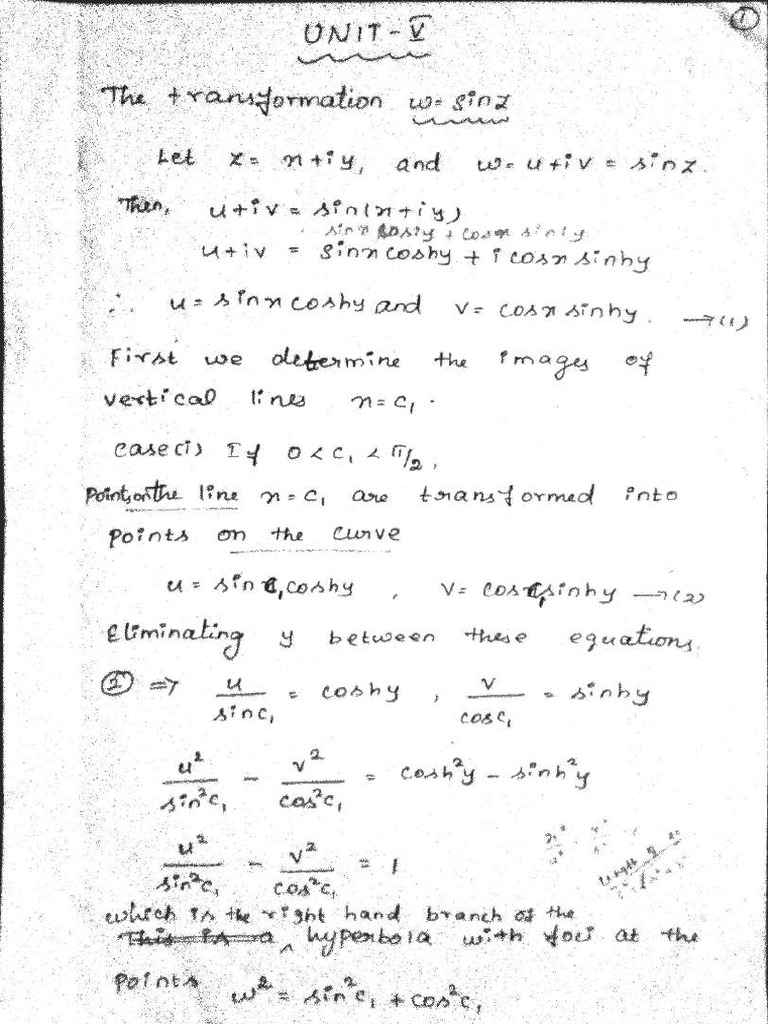 1
UNIT-V
The transformation w= sinz
Let z= x+iy, and w= u+iv = sinz.
Then, u+iv = sin(x+iy)
sinx cosiy + cosx siniy
u+iv = sinx coshy + i cosx sinhy
∴ u= sinx coshy and v= cosx sinhy. →(1)
First we determine the images of
vertical lines x=c₁.
case(i) If 0<c₁<π/2,
Points on the line x=c₁ are transformed into
points on the curve
u = sinc₁coshy, v= cosc₁sinhy →(2)
Eliminating y between these equations.
② ⇒ u/sinc₁ = coshy, v/cosc₁ = sinhy
u²/sin²c₁ - v²/cos²c₁ = cosh²y - sinh²y
u²/sin²c₁ - v²/cos²c₁ = 1
which is the right hand branch of the
This is a hyperbola with foci at the
points w² = sin²c₁ + cos²c₁